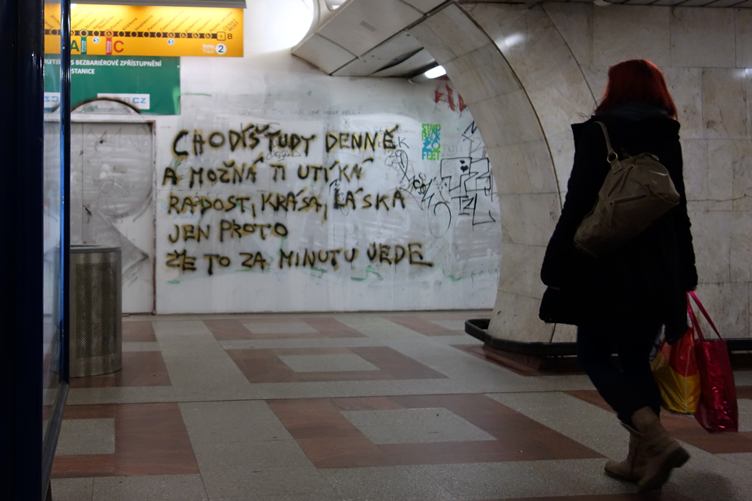 B
A C
2
S BEZBARIÉROVÉ ZPŘÍSTUPNĚNÍ
STANICE
CZ
CHODÍŠ TUDY DENNĚ
A MOŽNÁ TI UTÍKÁ
RADOST, KRÁSA, LÁSKA
JEN PROTO
ŽE TO ZA MINUTU JEDE
FEET